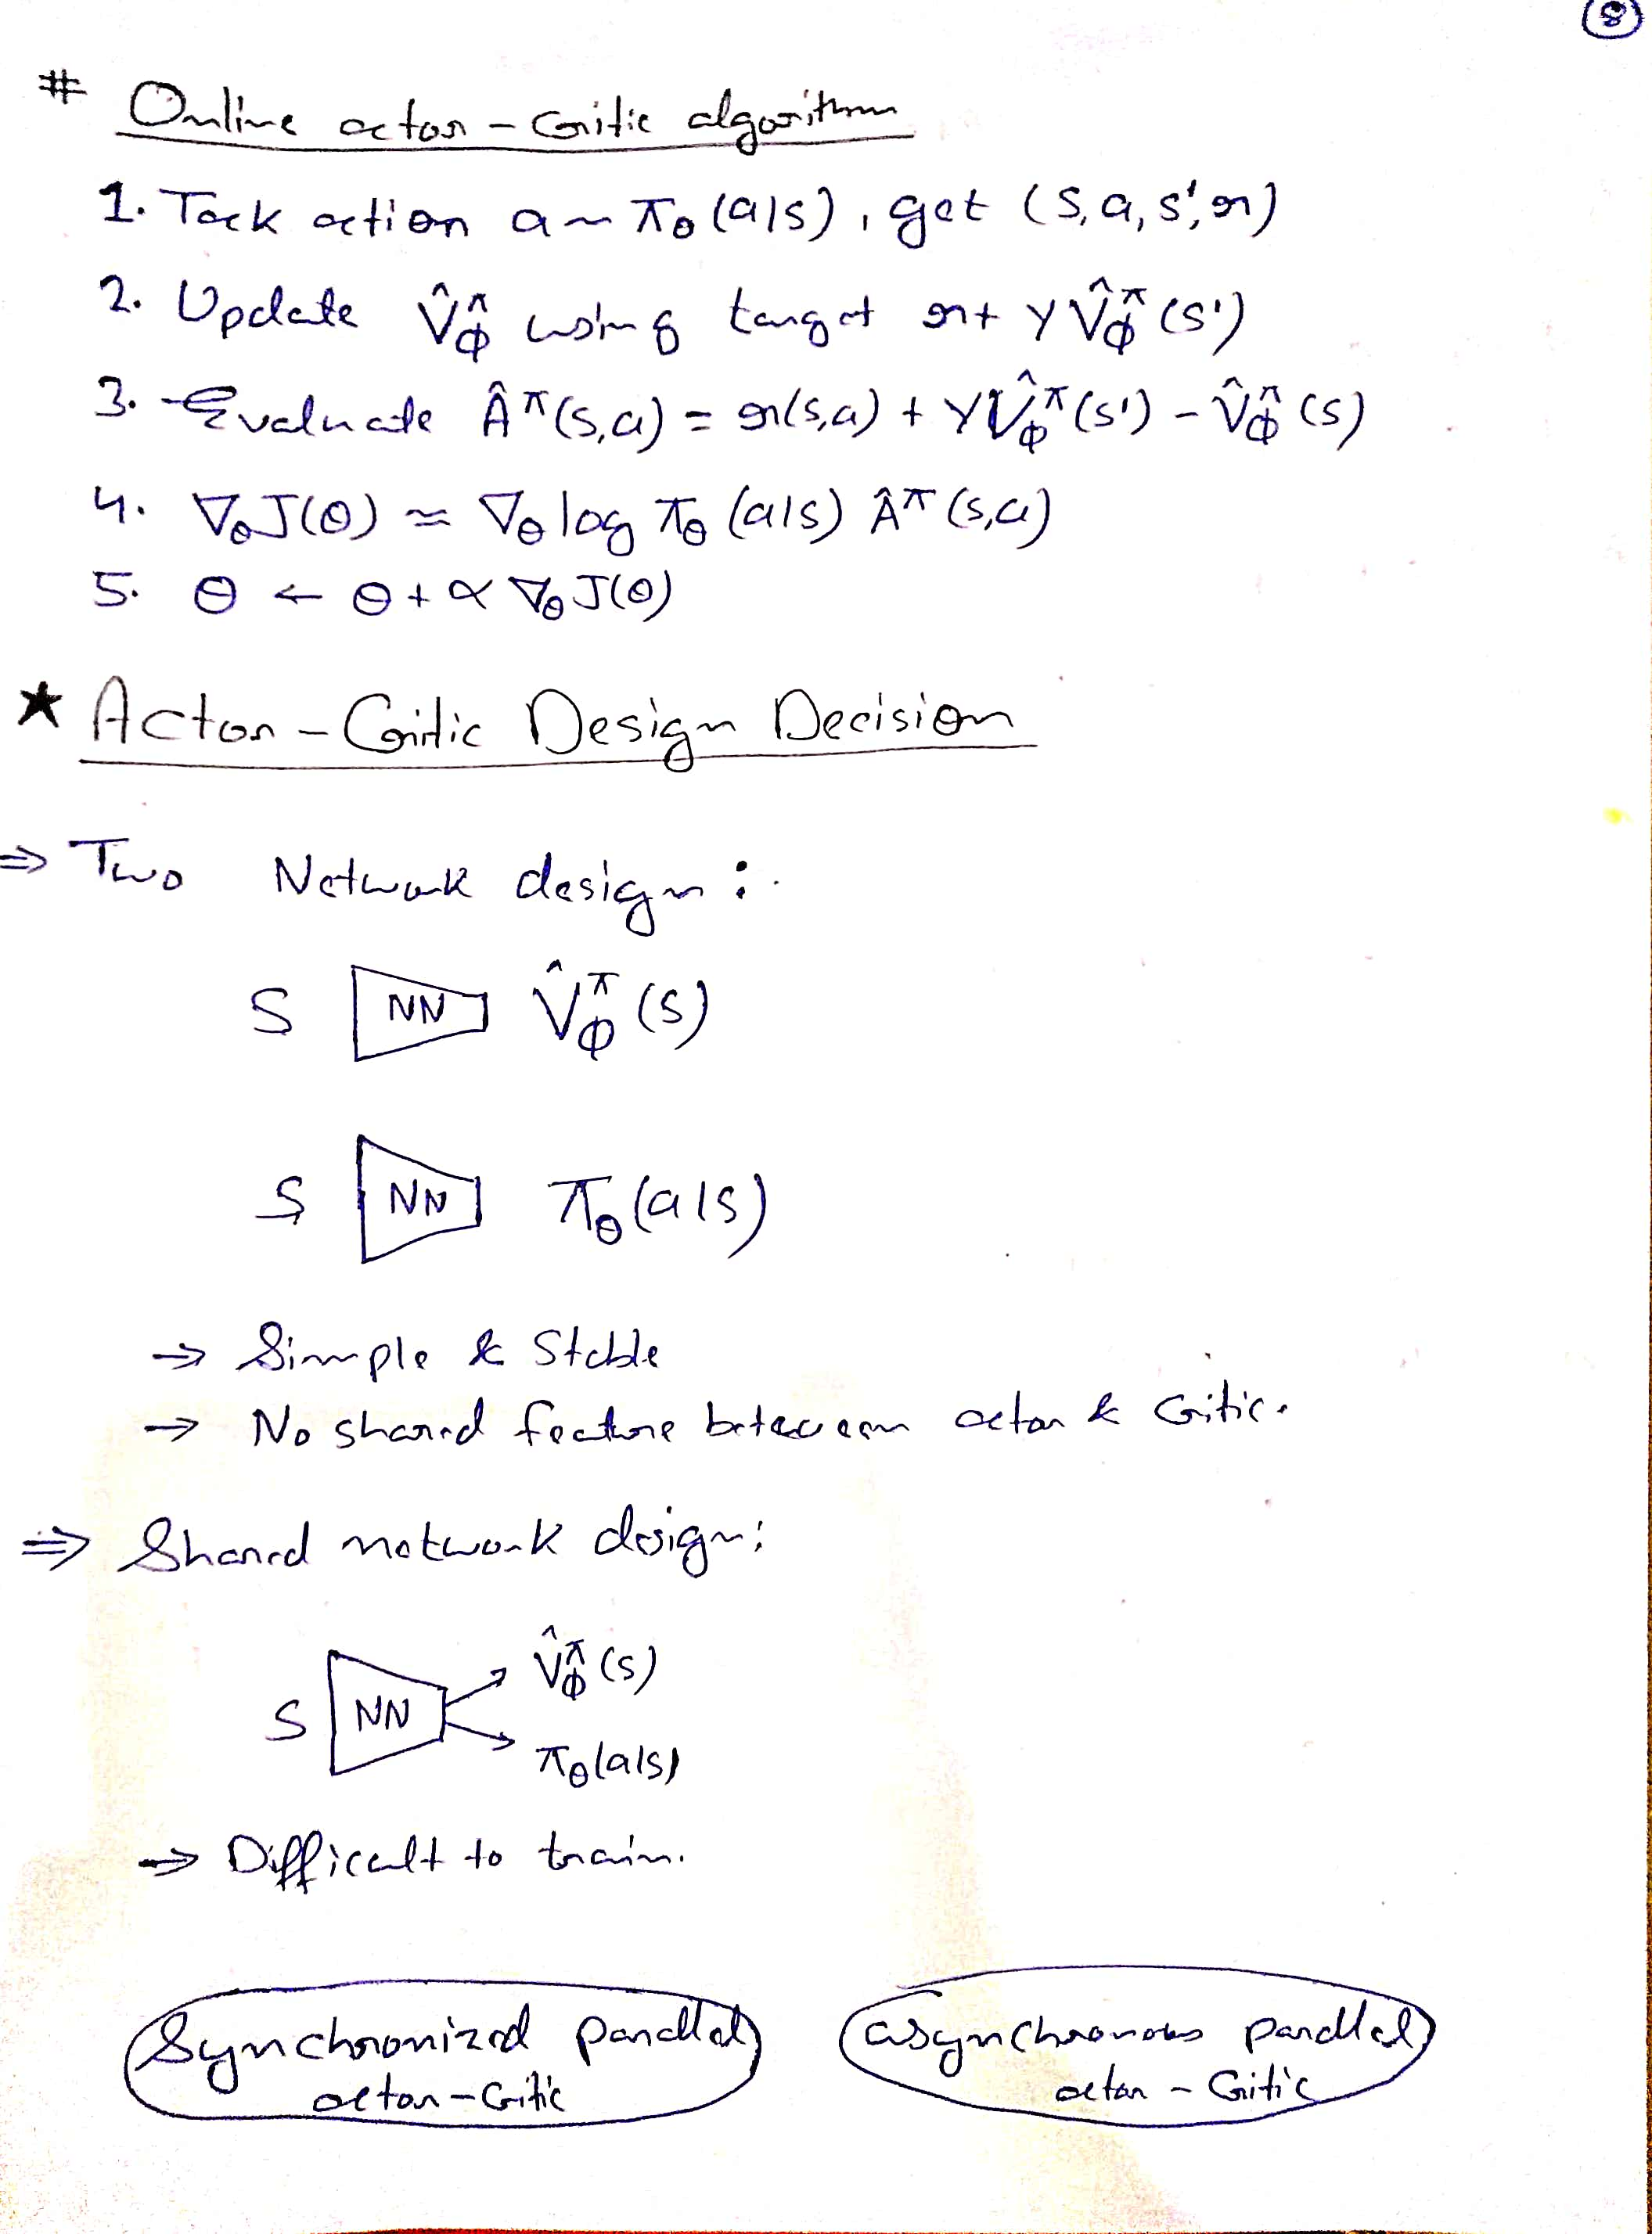 8
# Online actor-critic algorithm
1. Tack action a ~ π_θ(a|s), get (s, a, s', r)
2. Update V̂^π_φ using target r + γ V̂^π_φ(s')
3. Evaluate Â^π(s,a) = r(s,a) + γ V̂^π_φ(s') - V̂^π_φ(s)
4. ∇_θ J(θ) ≈ ∇_θ log π_θ(a|s) Â^π(s,a)
5. θ ← θ + α ∇_θ J(θ)
★ Actor-Critic Design Decision
⇒ Two Network design:
S NN V̂^π_φ(s)
S NN π_θ(a|s)
→ Simple & Stable
→ No shared feature between actor & critic.
⇒ Shared network design:
S NN V̂^π_φ(s)
π_θ(a|s)
→ Difficult to train.
Synchronized parallel
actor-critic
asynchronous parallel
actor-critic